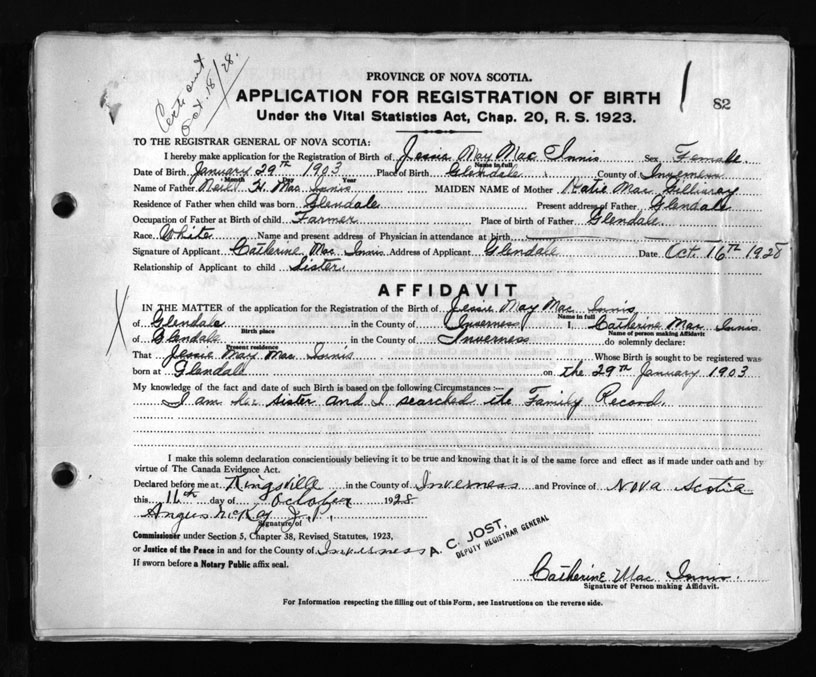 Cert. out
Oct. 18/28.
PROVINCE OF NOVA SCOTIA.
APPLICATION FOR REGISTRATION OF BIRTH
1 82
Under the Vital Statistics Act, Chap. 20, R. S. 1923.
TO THE REGISTRAR GENERAL OF NOVA SCOTIA:
I hereby make application for the Registration of Birth of Jessie May Mac Innis Sex Female.
Name in full
Date of Birth January 29th 1903 Place of Birth Glendale County of Inverness
Month Day Year
Name of Father Neil H. Mac Innis MAIDEN NAME of Mother Katie Mac Gillivray
Residence of Father when child was born Glendale Present address of Father Glendale
Occupation of Father at Birth of child Farmer Place of birth of Father Glendale.
Race White Name and present address of Physician in attendance at birth
Signature of Applicant Catherine Mac Innis Address of Applicant Glendale Date Oct. 16th 1928
Relationship of Applicant to child Sister.
AFFIDAVIT
IN THE MATTER of the application for the Registration of the Birth of Jessie May Mac Innis
Name in full
of Glendale in the County of Inverness I, Catherine Mac Innis
Birth place Name of person making Affidavit
of Glendale in the County of Inverness do solemnly declare:
Present residence
That Jessie May Mac Innis Whose Birth is sought to be registered was
born at Glendale on the 29th January 1903
My knowledge of the fact and date of such Birth is based on the following Circumstances:—
I am her sister and I searched the Family Record.
I make this solemn declaration conscientiously believing it to be true and knowing that it is of the same force and effect as if made under oath and by
virtue of The Canada Evidence Act.
Declared before me at Kingsville in the County of Inverness and Province of Nova Scotia
this 16th day of October 1928
Angus McKay J.P.
Signature of
Commissioner under Section 5, Chapter 38, Revised Statutes, 1923,
or Justice of the Peace in and for the County of Inverness
A. C. JOST,
DEPUTY REGISTRAR GENERAL
If sworn before a Notary Public affix seal.
Catherine Mac Innis.
Signature of Person making Affidavit.
For Information respecting the filling out of this Form, see Instructions on the reverse side.